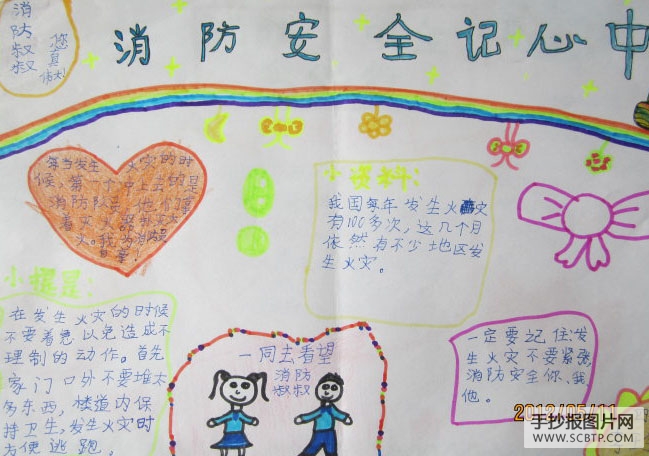 消防安全记心中
消防叔叔
您真伟大!
每当发生火灾的时
候,第一个冲上去的是
消防队
小资料:
我国每年发生火灾
有100多次,这几个月
依然有不少地区发
生火灾。
小提是:
在发生火灾的时候
不要着急以免造成不
理制的动作。首先
家门口外不要堆太
多东西,楼道内保
持卫生,发生火灾时
方便逃跑。
一同去看望
消防
叔叔
一定要记住:发
生火灾不要紧张
消防安全你、我、
他。
2012/05/11
手抄报图片网
WWW.SCBTP.COM